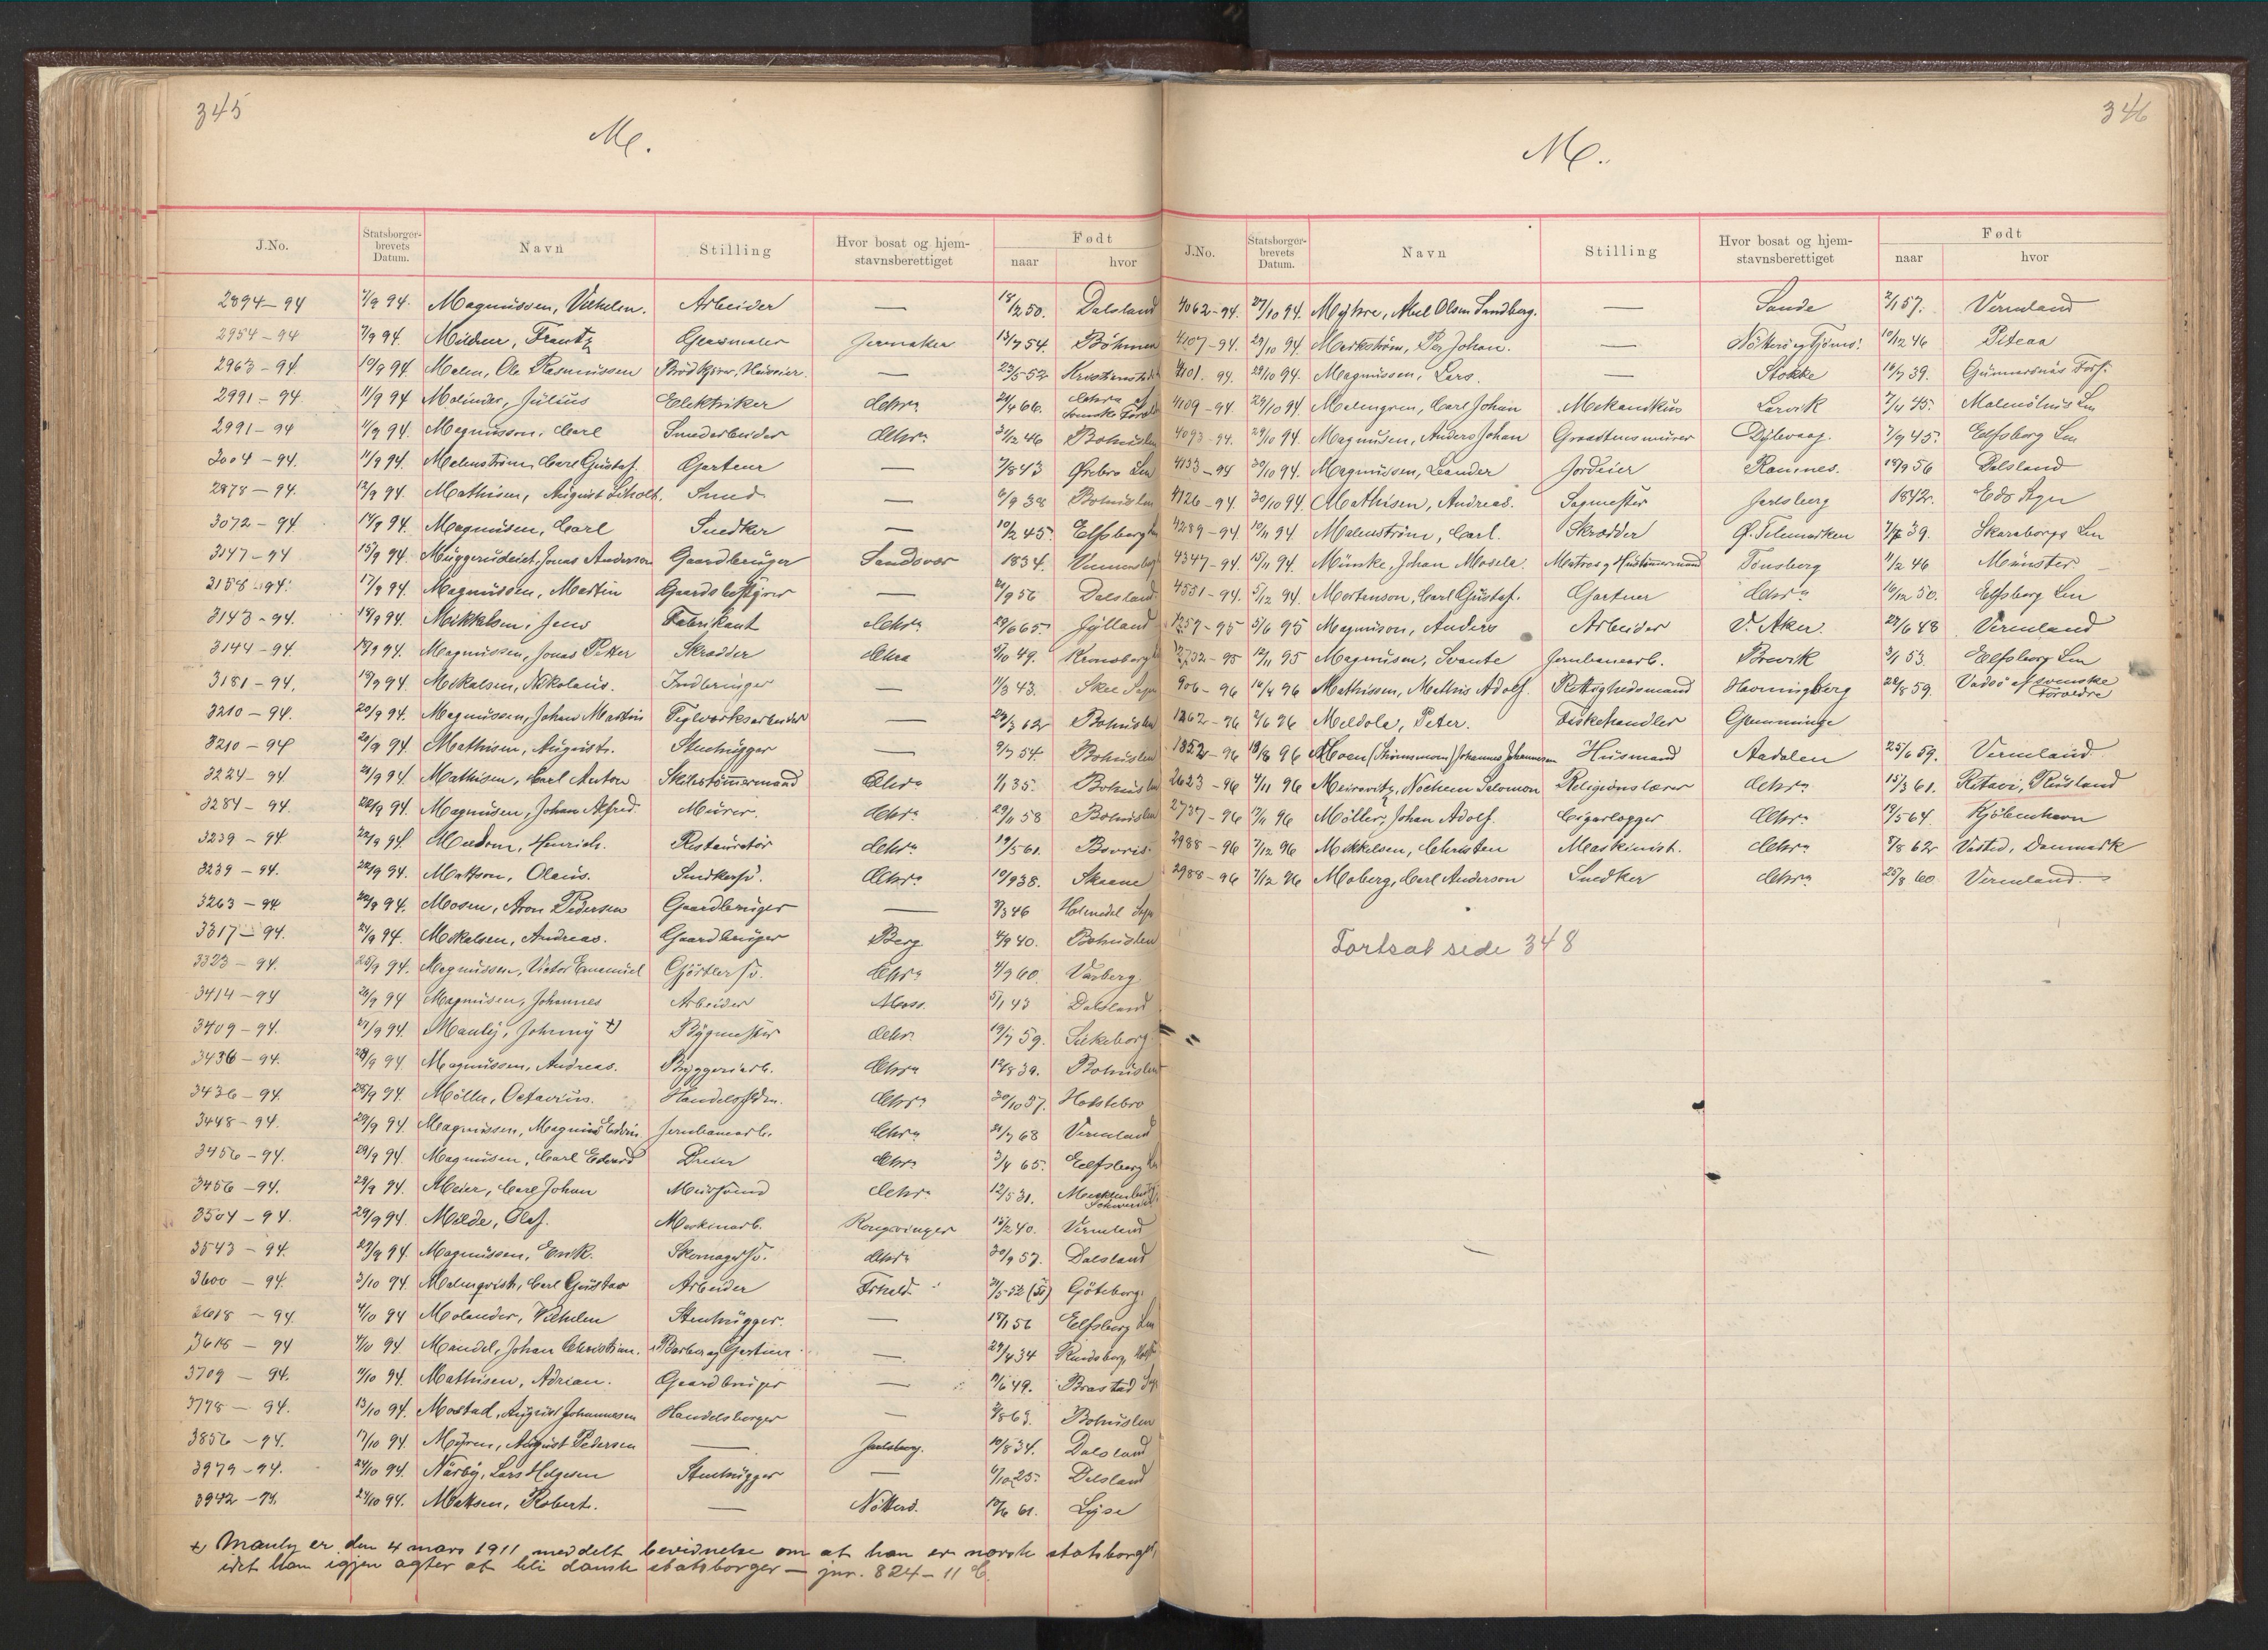 345
M.
J.No. Statsborger-brevets Datum. Navn Stilling Hvor bosat og hjem-stavnsberettiget Født naar hvor
2894-94 7/9 94. Magnussen, Vilhelm. Arbeider — 18/2 50. Dalsland
2954-94 7/9 94. Mildner, Frantz Glasmaler Jevnaker 13/7 54. Böhmen
2963-94 10/9 94 Malm, Ole Rasmussen — 23/5 52
2991-94 11/9 94 Molinder, Julius Elektriker Chra 24/4 66. Chra af svenske
2991-94 11/9 94. Magnusson, Carl Smedarbeider Chra 31/12 46 Bohuslen
3004-94. 11/9 94. Malmström, Carl Gustaf. Gartner — 7/8 43 Ørebro Len
2878-94. 12/9 94. Mathisen, August Smed — 6/9 38 Bohuslen
3072-94 14/9 94. Magnusen, Carl Snedker — 10/2 45. Elfsborg
3147-94 15/9 94. Jonas Anderson Gaardbruger Sandsvær 1834.
3158-94. 17/9 94. Magnussen, Martin Gaardsbestyrer — 21/9 56 Dalsland
3143-94. 18/9 94. Mikkelsen, Jens Fabrikant Chra 29/6 65. Jylland
3144-94. 18/9 94. Magnussen, Jonas Petter Skrædder Chra 5/10 49. Kronoberg
3181-94. 19/9 94. Mikalsen, Nikolaus. Indbruger — 11/3 43. Skee Sogn
3210-94. 20/9 94. Magnussen, Johan Martin Teglværksarbeider — 23/3 62 Bohuslen
3210-94 20/9 94. Mathisen, August. Stenhugger — 9/7 54. Bohuslen
3224-94 21/9 94. Mathisen, Carl Anton Skibstömmermand Chra 1/1 35. Bohuslen
3284-94. 22/9 94. Magnusen, Johan Alfred. Murer. Chra 29/11 58 Bohuslen
3239-94. 22/9 94. Henrich. Restauratör Chra 19/5 61.
3239-94. 22/9 94. Mattson, Olaus. Snedkersv. Chra 10/9 38. Skaane
3263-94 22/9 94. Mosen, Aron Pedersen Gaardbruger — 7/3 46 Holmedal Sogn
3317-94. 24/9 94. Mikalsen, Andreas. Gaardbruger Berg 4/9 40. Bohuslen
3323-94. 25/9 94. Magnussen, Victor Emanuel Gjörtlersv. Chra 4/9 60. Varberg
3414-94 26/9 94 Magnusen, Johannes Arbeider Moss. 5/1 43 Dalsland
3409-94. 27/9 94. Manly, Johnny +) Bygmester Chra 19/7 59. Silkeborg.
3436-94. 28/9 94. Magnussen, Andreas. Byggeriarb. Chra 12/8 39. Bohuslen
3436-94. 28/9 94. Möller, Octavius. Chra 30/10 57. Holstebro
3448-94. 29/9 94. Magnussen, Magnus Edvin Jernbanearb. Chra 21/7 68 Vermland
3456-94. 29/9 94. Magnusen, Carl Edvard Dreier Chra 3/4 65. Elfsborg Len
3456-94. 29/9 94. Meier, Carl Johan Chra 12/5 31. Mecklenburg Schwerin
3504-94. 29/9 94. Milde, Olaf. Maskinarb. Kongsvinger 15/2 40. Vermland
3543-94. 29/9 94. Magnussen, Erik. Skomagersv. Chra 30/9 57. Dalsland
3600-94. 3/10 94. Malmqvist, Carl Gustav Arbeider Frhald. 31/5 52 (51) Göteborg.
3618-94. 4/10 94 Molander, Vilhelm Stenhugger. — 18/1 56 Elfsborg Len
3618-94 4/10 94 Mandel, Johan Christian. Barber og Gartner — 29/4 34
3709-94. 11/10 94. Mathisen, Adrian. Gaardbruger — 11/6 49. Brastad
3778-94. 13/10 94. Mostad, August Johannesen Handelsborger — 2/8 63. Bohuslen
3856-94. 17/10 94. Myren, August Pedersen — Jarlsberg. 10/8 34. Dalsland
3979-94. 24/10 94. Lars Helgesen Stenhugger — 6/10 25. Dalsland
3942-94. 24/10 94. Matsen, Robert. — Nötterö. 61. Lyse
+) Manly er den 4 mars 1911 meddelt bevidnelse om at han er norsk statsborger,
idet han igjen agter at bli dansk statsborger — jnr. 824-11 C.
346
M.
J.No. Statsborger-brevets Datum. Navn Stilling Hvor bosat og hjem-stavnsberettiget Født naar hvor
4062-94. 27/10 94. Myhre, Axel Olsen Sandberg. — Sande 2/1 57. Vermland
4107-94. 29/10 94. Markström, Per Johan. — Nötterö og Tjömö. 10/12 46 Piteaa
4101-94. 29/10 94. Magnussen, Lars. — Stokke 10/7 39. Gunnarsnäs Fors.
4109-94. 29/10 94. Malmgren, Carl Johan Mekanikus Larvik 7/4 45. Malmöhus Len
4093-94. 29/10 94. Magnusen, Anders Johan Graastensmurer Dybvaag. 7/9 45. Elfsborg Len
4133-94 30/10 94. Magnussen, Leander Jordeier Ramnes. 18/9 56 Dalsland
4126-94. 30/10 94. Mathisen, Andreas. Sagmester Jarlsberg 1842. Eds Sogn
4289-94 10/11 94. Malmström, Carl. Skrædder Ø. Telemarken 7/7 39. Skaraborgs Len
4347-94. 15/11 94. Münske, Johan Mosela. Matros og Hustömmermand Tönsberg 11/2 46 Münster
4551-94. 5/12 94. Mortenson, Carl Gustaf. Gartner Chra 16/12 50. Elfsborg Len
1259-95 5/6 95 Magnuson, Anders Arbeider V. Aker. 27/6 48 Vermland
2732-95 12/11 95 Magnusen, Svante Jernbanearb. Brevik 3/1 53. Elfsborg Len
906-96 16/4 96 Mathissen, Mathis Adolf. Rettighedsmand Havningberg 22/8 59. Vadsö af svenske Foreldre
1262-96 2/6 96 Meldola, Peter. Fiskehandler Glemminge
1852-96 18/8 96 Moen (Thinesmoen) Johannes Johannesen Husmand Aadalen 25/6 59. Vermland
2623-96 4/11 96 Meirovitz, Nochem Salomon Religionslærer Chra 15/3 61. Retavi, Rusland
2737-96 17/11 96 Möller, Johan Adolf. Cigarlogger Chra 14/5 64. Kjöbenhavn
2988-96 7/12 96 Mikkelsen, Christen Maskinist. Chra 8/8 62 Vested, Danmark
2988-96 7/12 96 Moberg, Carl Anderson Snedker Chra 25/8 60 Vermland.
Fortsat side 348